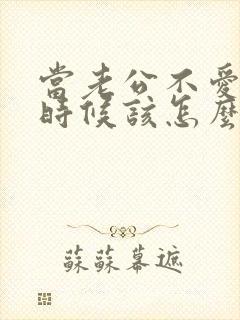 當老公不愛
時候該怎麼
蘇蘇幕遮